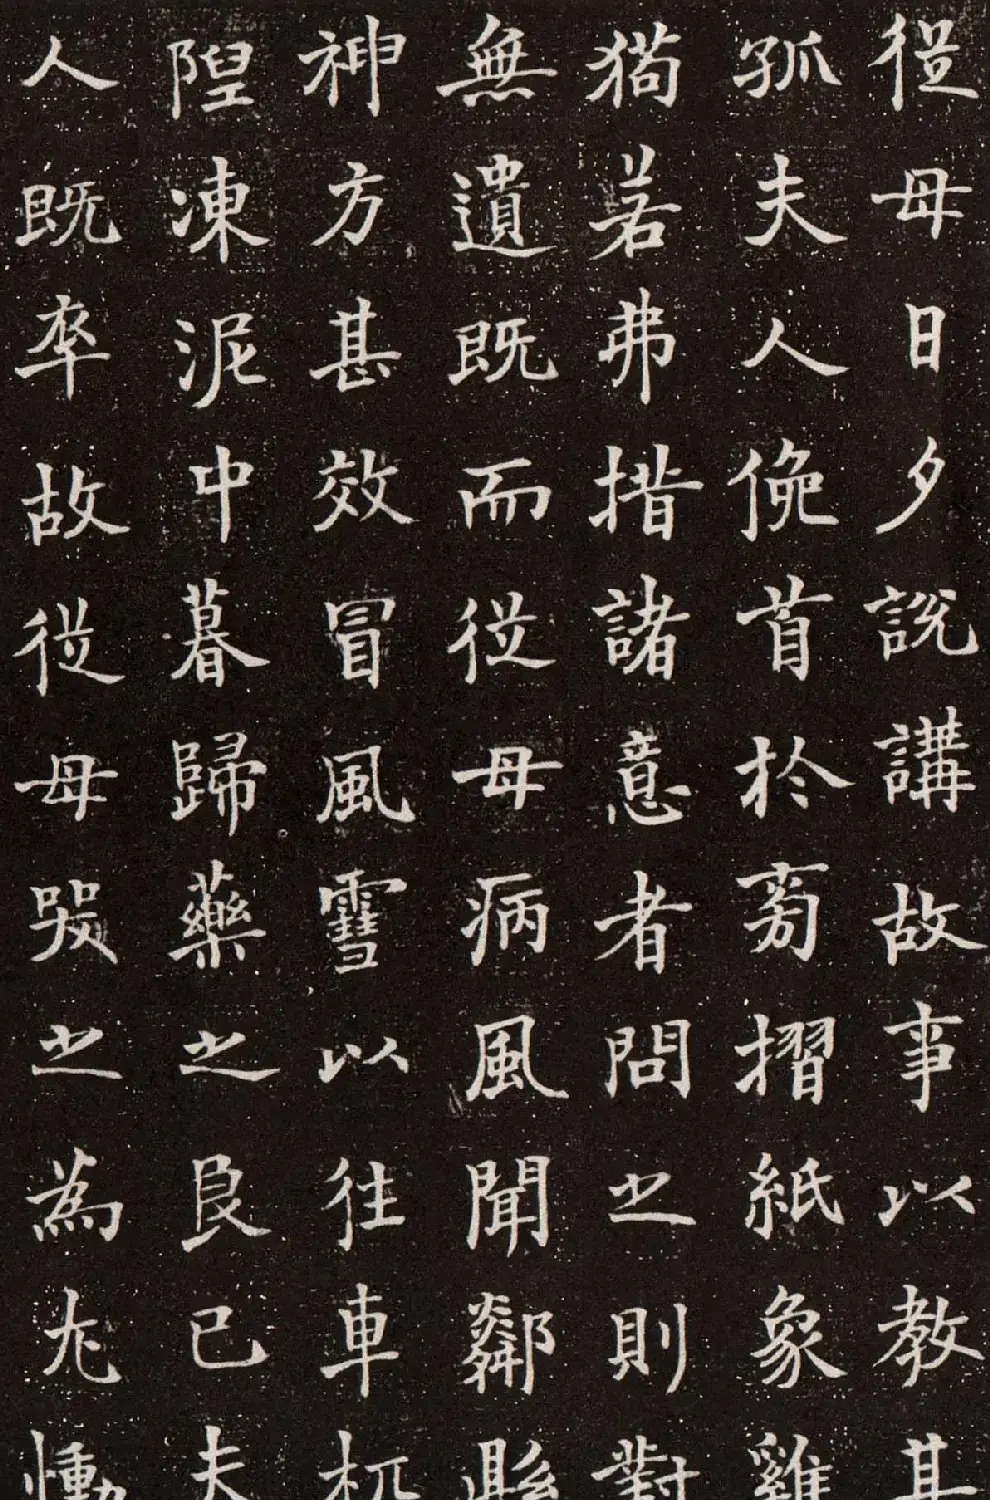 從母日夕說講故事以教其
孤夫人俛首於旁摺紙象雞
猫若弗措諸意者問之則對
無遺既而從母病風聞鄰縣
神方甚效冒風雪以往車杌
隉凍泥中暮歸藥之良已夫
人既卒故從母哭之為尤慟